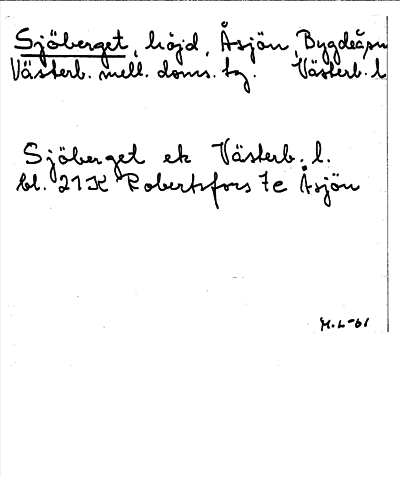 Sjöberget, höjd, Åsjön, Bygdeå sn
Västerb. mell. doms. tg. Västerb. l
Sjöberget ek Västerb. l.
bl. 21K Robertsfors 7e Åsjön
H.L-61